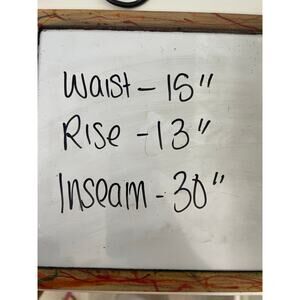 Waist - 15"
Rise - 13"
Inseam - 30"